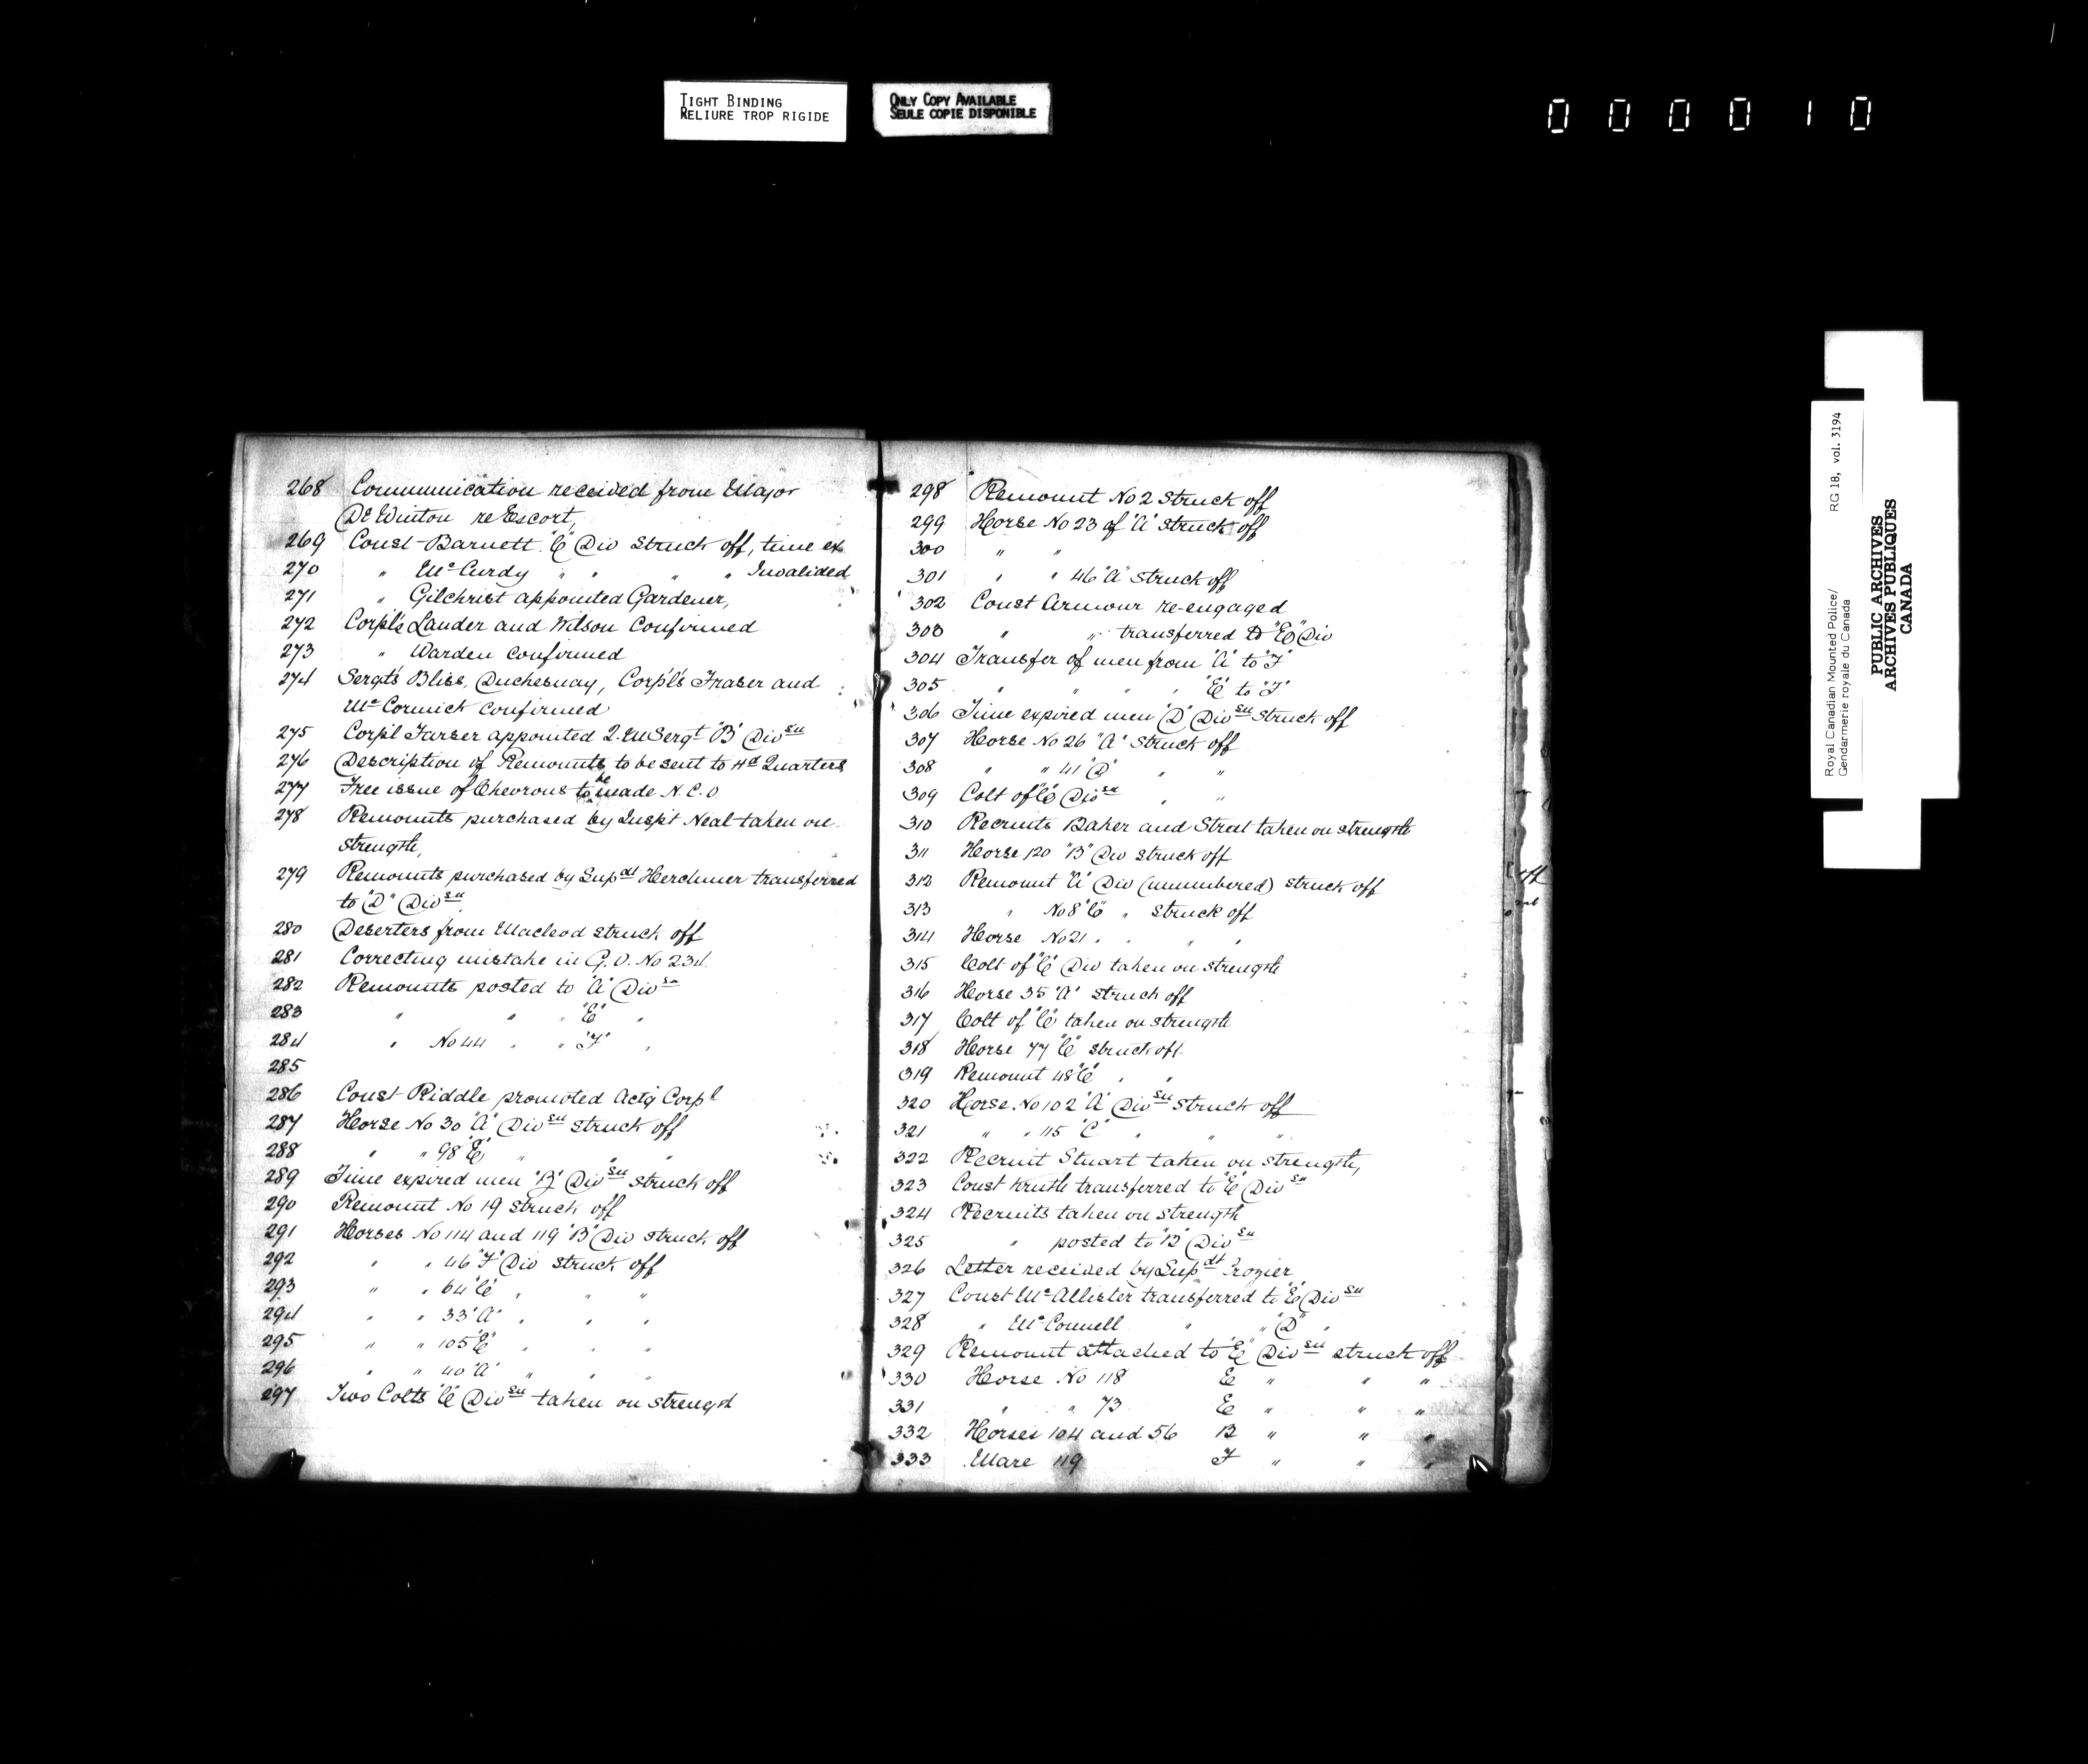 TIGHT BINDING
RELIURE TROP RIGIDE
ONLY COPY AVAILABLE
SEULE COPIE DISPONIBLE
0 0 0 0 1 0
268 Communication received from Major
De Winton re Escort,
269 Const Barnett "C" Div Struck off, time ex
270 " McCurdy " " " " Invalided
271 " Gilchrist appointed Gardener,
272 Corpl's Lauder and Wilson Confirmed
273 " Warden confirmed
274 Sergt's Bliss, Duchesnay, Corpl's Fraser and
McCormick confirmed
275 Corpl Farser appointed Q.M Sergt "B" Divsn
276 Description of Remounts to be sent to Hd Quarters
277 Free issue of Chevrons to be made N.C.O
278 Remounts purchased by Inspt Neal taken on
strength,
279 Remounts purchased by Supdt Herchmer transferred
to "D" Divsn
280 Deserters from Macleod struck off
281 Correcting mistake in G.O. No 234
282 Remounts posted to "A" Divsn
283 " " " "E" "
284 " No 44 " " "F" "
285
286 Const Riddle promoted Actg Corpl
287 Horse No 30 "A" Divsn struck off
288 " " 98 "E" " "
289 Time expired men "B" Divsn struck off
290 Remount No 19 struck off
291 Horses No 114 and 119 "B" Div struck off
292 " " 46 "F" Div struck off
293 " " 64 "C" " " "
294 " " 33 "A" " " "
295 " " 105 "E" " " "
296 " " 40 "A" " " "
297 Two Colts "C" Divsn taken on strengt
298 Remount No 2 struck off
299 Horse No 23 of "A" struck off
300 " "
301 " " 46 "A" struck off
302 Const Armour re-engaged
303 " " transferred to "E" Div
304 Transfer of men from "A" to "F"
305 " " " " "E" to "F"
306 Time expired men "D" Divsn struck off
307 Horse No 26 "A" struck off
308 " " 41 "D" " "
309 Colt of "C" Divsn " "
310 Recruits Baker and taken on strength
311 Horse 120 "B" Div struck off
312 Remount "A" Div (unnumbered) struck off
313 " No 8 "C" " struck off
314 Horse No 21 " " " "
315 Colt of "C" Div taken on strength
316 Horse 35 "A" struck off
317 Colt of "C" taken on strength
318 Horse 77 "C" struck off
319 Remount 48 "C" " "
320 Horse No 102 "A" Divsn struck off
321 " " 115 "C" " " "
322 Recruit Stuart taken on strength,
323 Const transferred to "E" Divsn
324 Recruits taken on strength
325 " posted to "B" Divsn
326 Letter received by Supdt Crozier
327 Const McAllister transferred to "E" Divsn
328 " McConnell " " "D" "
329 Remount attached to "E" Divsn struck off
330 Horse No 118 E " " "
331 " " 73 E " " "
332 Horses 104 and 56 B " " "
333 Mare 119 F " " "
Royal Canadian Mounted Police/
Gendarmerie royale du Canada
RG 18, vol. 3194
PUBLIC ARCHIVES
ARCHIVES PUBLIQUES
CANADA